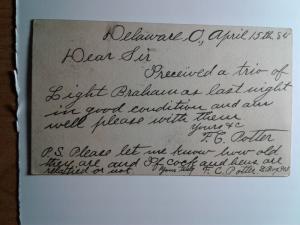 Delaware O, April 15th 84
Dear Sir
I received a trio of
Light Brahamas last night
in good condition and am
well please with them
Yours &c
F. C. Potter
P.S. Please let me know how old
they are and if cock and hens are
related or not. Yours Truly F. C. Potter